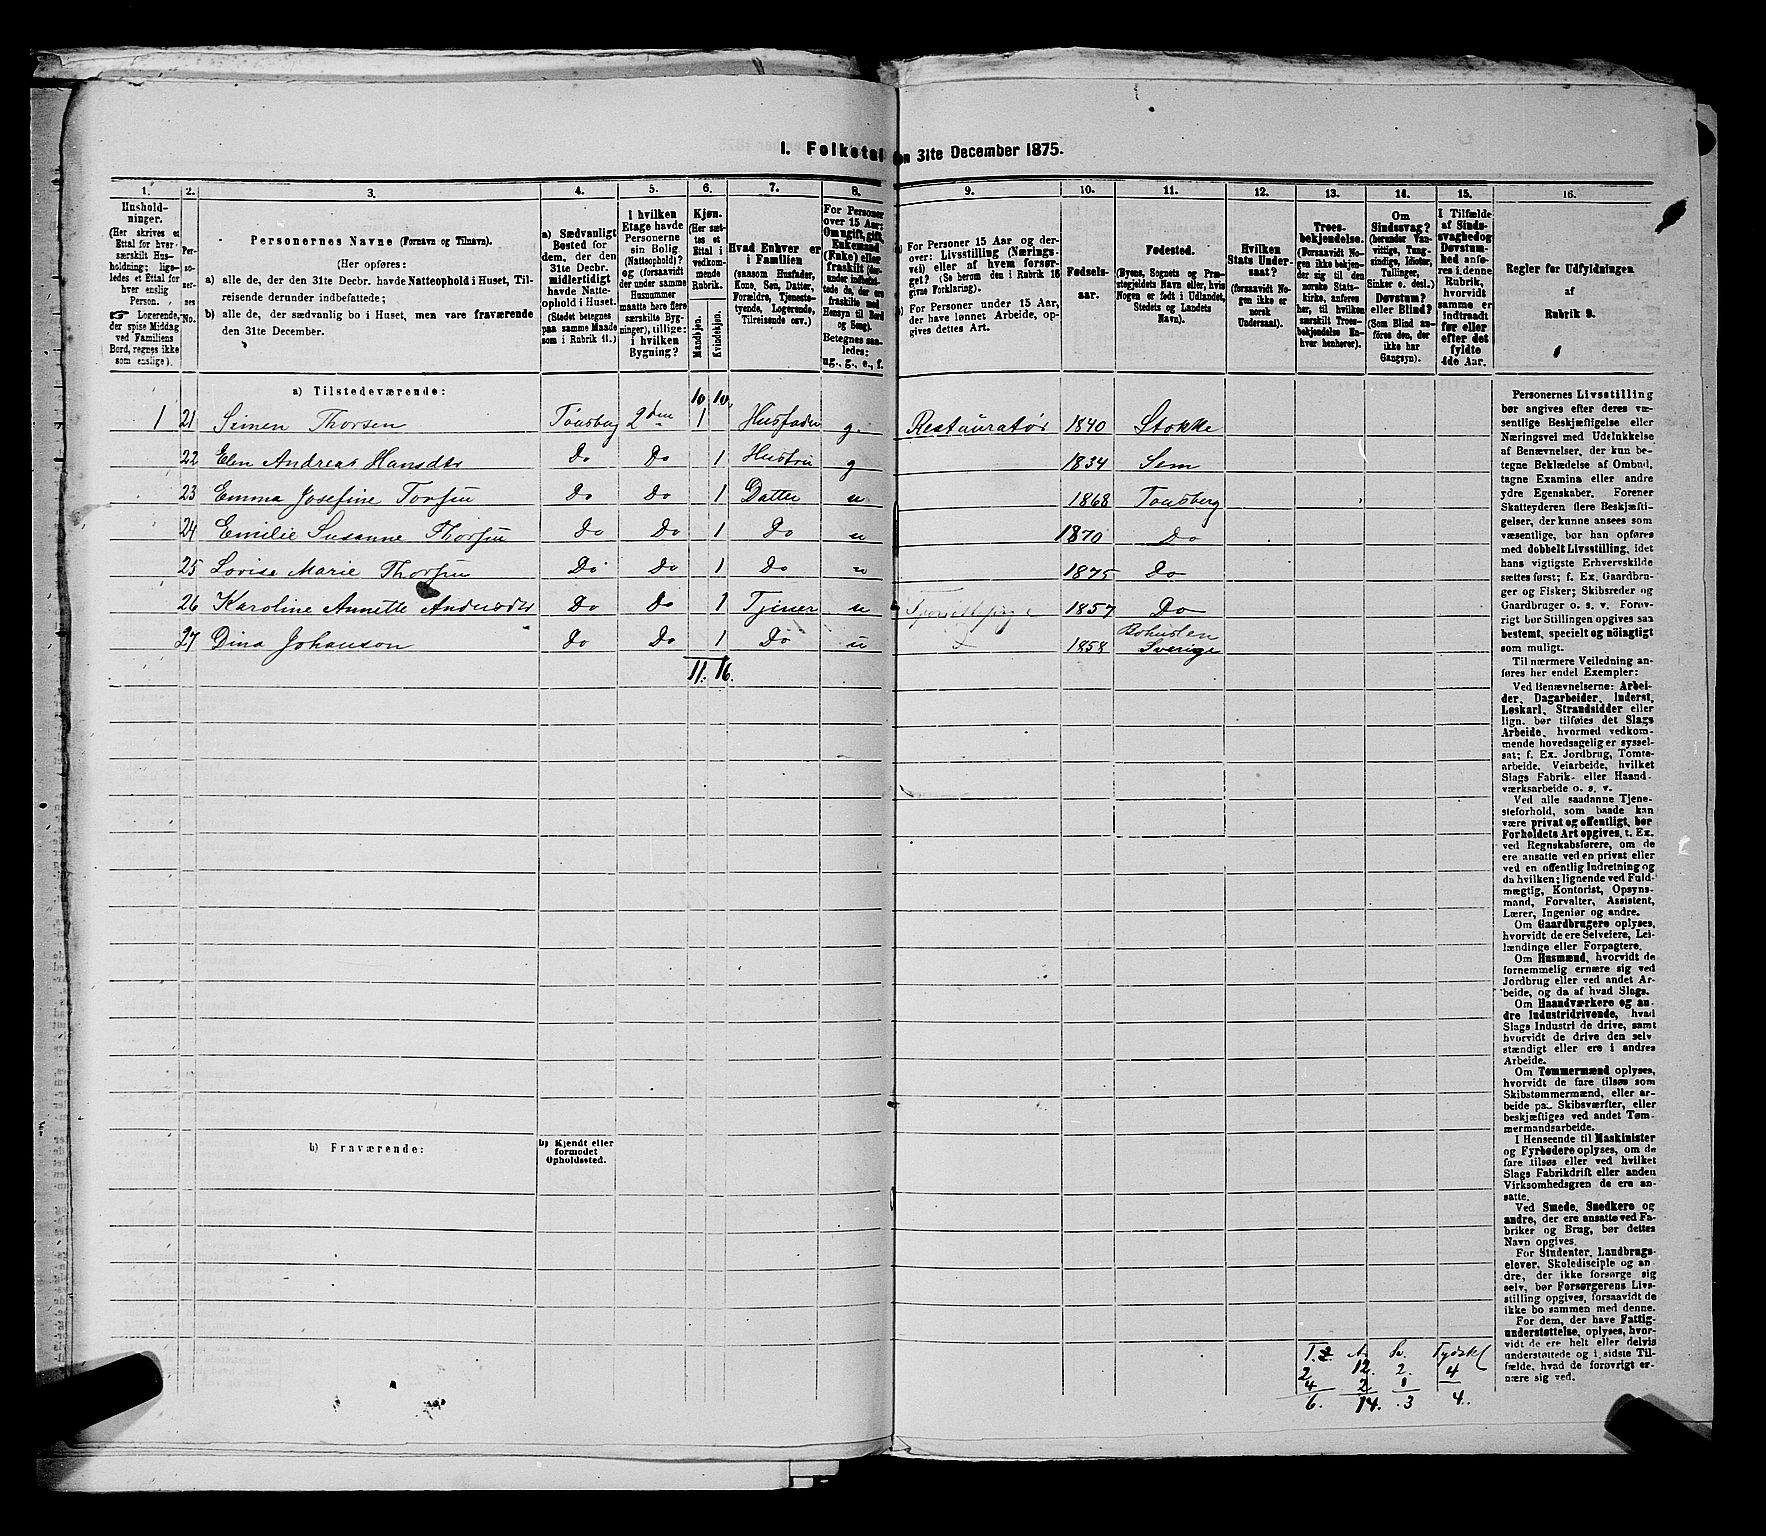 I. Folketal
n 31te December 1875.
1. 2. 3. 4. 5. 6. 7. 8. 9. 10. 11. 12. 13. 14. 15. 16.
Hushold-
ninger.
(Her skrives et
Ettal for hver
særskilt Hus-
holdning; lige-
ledes et Ettal for
hver enslig
Person.
☞ Logerende,
der spise Middag
ved Familiens
Bord, regnes ikke
som enslige).
Per-
so-
ner-
nes
No.
Personernes Navne (Fornavn og Tilnavn).
(Her opføres:
a) alle de, der den 31te Decbr. havde Natteophold i Huset, Til-
reisende derunder indbefattede;
b) alle de, der sædvanlig bo i Huset, men vare fraværende
den 31te December.
a) Sædvanligt
Bosted for
dem, der den
31te Decbr.
midlertidigt
havde Natte-
ophold i Huset.
(Stedet betegnes
paa samme Maade
som i Rubrik 11.)
I hvilken
Etage havde
Personerne
sin Bolig
(Natteophold)?
og (forsaavidt
der under samme
Husnummer
maatte høre flere
særskilte Byg-
ninger), tillige:
i hvilken
Bygning?
Kjøn.
(Her sæt-
tes et
Ettal i
vedkom-
mende
Rubrik.
Mandkjøn.
Kvindekjøn.
Hvad Enhver er
i Familien
(saasom Husfader,
Kone, Søn, Datter,
Forældre, Tjeneste-
tyende, Logerende,
Tilreisende osv.)
For Personer
over 15 Aar:
Om ugift, gift,
Enkemand
(Enke) eller
fraskilt (der-
under indbefat-
tede de, der ere
fraskilte med
Hensyn til Bord
og Seng).
Betegnes saa-
ledes:
ug., g., e., f.
a) For Personer 15 Aar og der-
over: Livsstilling (Nærings-
vei) eller af hvem forsør-
get? (Se herom den i Rubrik 16
givne Forklaring).
b) For Personer under 15 Aar,
der have lønnet Arbeide, op-
gives dettes Art.
Fødsels-
aar.
Fødested.
(Byens, Sognets og Præ-
stegjeldets Navn eller, hvis
Nogen er født i Udlandet,
Stedets og Landets
Navn).
Hvilken
Stats Under-
saat?
(forsaavidt No-
gen ikke er
norsk
Undersaat).
Troes-
bekjendelse.
(Forsaavidt No-
gen ikke bekjen-
der sig til den
norske Stats-
kirke, anføres
her, til hvilken
særskilt Troes-
bekjendelse En-
hver henhører).
Om
Sindssvag?
(herunder Van-
vittige, Tung-
sindige, Idioter,
Tullinger,
Sinker o. desl.)
Døvstum?
eller Blind?
(Som Blind an-
føres den, der
ikke har
Gangsyn).
I Tilfælde
af Sinds-
svaghed og
Døvstum-
hed anfø-
res i denne
Rubrik,
hvorvidt
samme er
indtraadt
før eller
efter det
fyldte
4de Aar.
Regler for Udfyldningen
af
Rubrik 9.
a) Tilstedeværende:
10 10
1 21 Simen Thorsen Tønsberg 2den 1 Husfader g. Restauratør 1840 Stokke
22 Elen Andrea Hansdtr Do Do 1 Hustru g 1834 Sem
23 Emma Josefine Torsen Do Do 1 Datter u 1868 Tønsberg
24 Emilie Susanne Thorsen Do Do 1 Do u 1870 Do
25 Lovise Marie Thorsen Do Do 1 Do u 1875 Do
26 Karoline Annette Andersdtr Do Do 1 Tjener u 1857 Do
27 Dina Johanson Do Do 1 Do u 1858 Bohuslen Sverige
11. 16.
b) Fraværende:
b) Kjendt eller
formodet
Opholdssted.
Personernes Livsstilling
bør angives efter deres væ-
sentlige Beskjæftigelse eller
Næringsvei med Udelukkelse
af Benævnelser, der kun be-
tegne Beklædelse af Ombud,
tagne Examina eller andre
ydre Egenskaber. Forener
Skatteyderen flere Beskjæfti-
gelser, der kunne ansees som
væsentlige, bør han opføres
med dobbelt Livsstilling, idet
hans vigtigste Erhvervskilde
sættes først; f. Ex. Gaardbru-
ger og Fisker; Skibsreder og
Gaardbruger o. s. v. Forøv-
rigt bør Stillingen opgives saa
bestemt, specielt og nøiagtigt
som muligt.
Til nærmere Veiledning an-
føres her endel Exempler:
Ved Benævnelserne: Arbei-
der, Dagarbeider, Inderst,
Løskarl, Strandsidder eller
lign. bør tilføies det Slags
Arbeide, hvormed vedkom-
mende hovedsagelig er syssel-
sat; f. Ex. Jordbrug, Tomte-
arbeide, Veiarbeide, hvilket
Slags Fabrik- eller Haand-
værksarbeide o. s. v.
Ved alle saadanne Tjene-
steforhold, som baade kan
være privat og offentligt, bør
Forholdets Art opgives, t. Ex.
ved Regnskabsførere, om de
ere ansatte ved en privat eller
ved en offentlig Indretning og
da hvilken; lignende ved Fuld-
mægtig, Kontorist, Opsyns-
mand, Forvalter, Assistent,
Lærer, Ingeniør og andre.
Om Gaardbrugere oplyses,
hvorvidt de ere Selveiere, Lei-
lændinge eller Forpagtere.
Om Husmænd, hvorvidt de
fornemmelig ernære sig ved
Jordbrug eller ved andet Ar-
beide, og da af hvad Slags.
Om Haandværkere og an-
dre Industridrivende, hvad
Slags Industri de drive, samt
hvorvidt de drive den selv-
stændigt eller ere i andres
Arbeide.
Om Tømmermænd oplyses,
hvorvidt de fare tilsøs som
Skibstømmermænd, eller ar-
beide paa Skibsværfter, eller
beskjæftiges ved andet Tøm-
mermandsarbeide.
I Henseende til Maskinister
og Fyrbødere oplyses, om de
fare tilsøs eller ved hvilket
Slags Fabrikdrift eller anden
Virksomhedsgren de ere an-
satte.
Ved Smede, Snedkere og
andre, der ere ansatte ved Fa-
briker og Brug, bør dettes
Navn opgives.
For Studenter, Landbrugs-
elever, Skoledisciple og an-
dre, der ikke forsørge sig
selv, bør Forsørgerens Livs-
stilling opgives, forsaavidt de
ikke bo sammen med denne.
For dem, der have Fattig-
understøttelse, oplyses, hvor-
vidt de ere helt eller delvis
understøttede og i sidste Til-
fælde, hvad de forøvrigt er-
nære sig ved.
2 12. 2. 4
4 2 1
6. 14. 3 4.